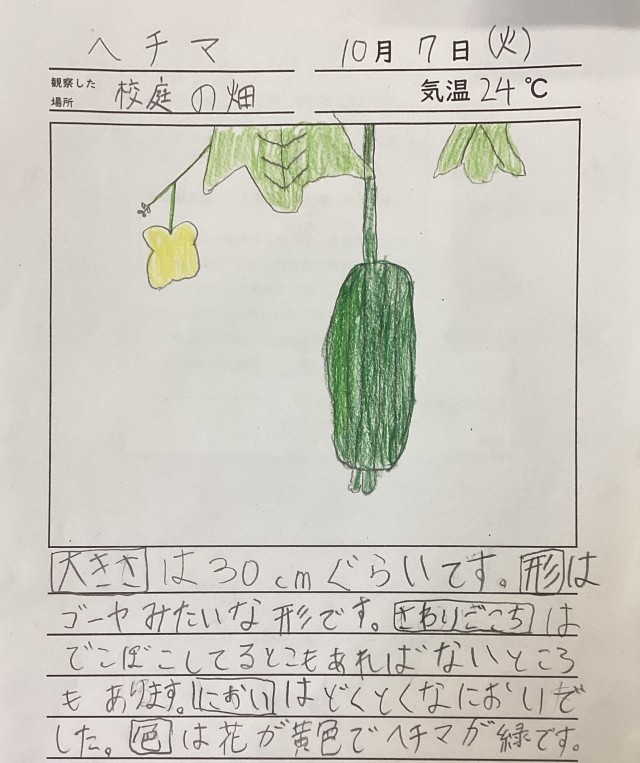 ヘチマ 10月7日(火)
観察した場所 校庭の畑 気温24℃
大きさは30cmぐらいてす。形は
ゴーヤみたいな形です。さわりごこちは
でこぼこしてるとこもあればないところ
もあります。においはどくとくなにおいで
した。色は花が黄色でヘチマが緑です。